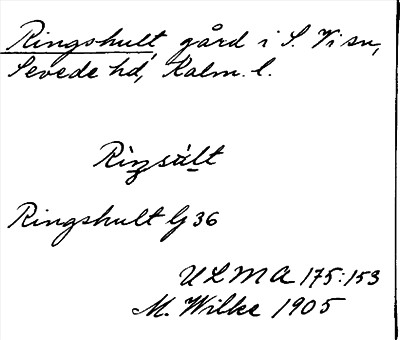 Ringshult, gård i S. Vi sn,
Sevede hd, Kalm. l.
Ringshult G 36
ULMA 175:153
M. Wilke 1905